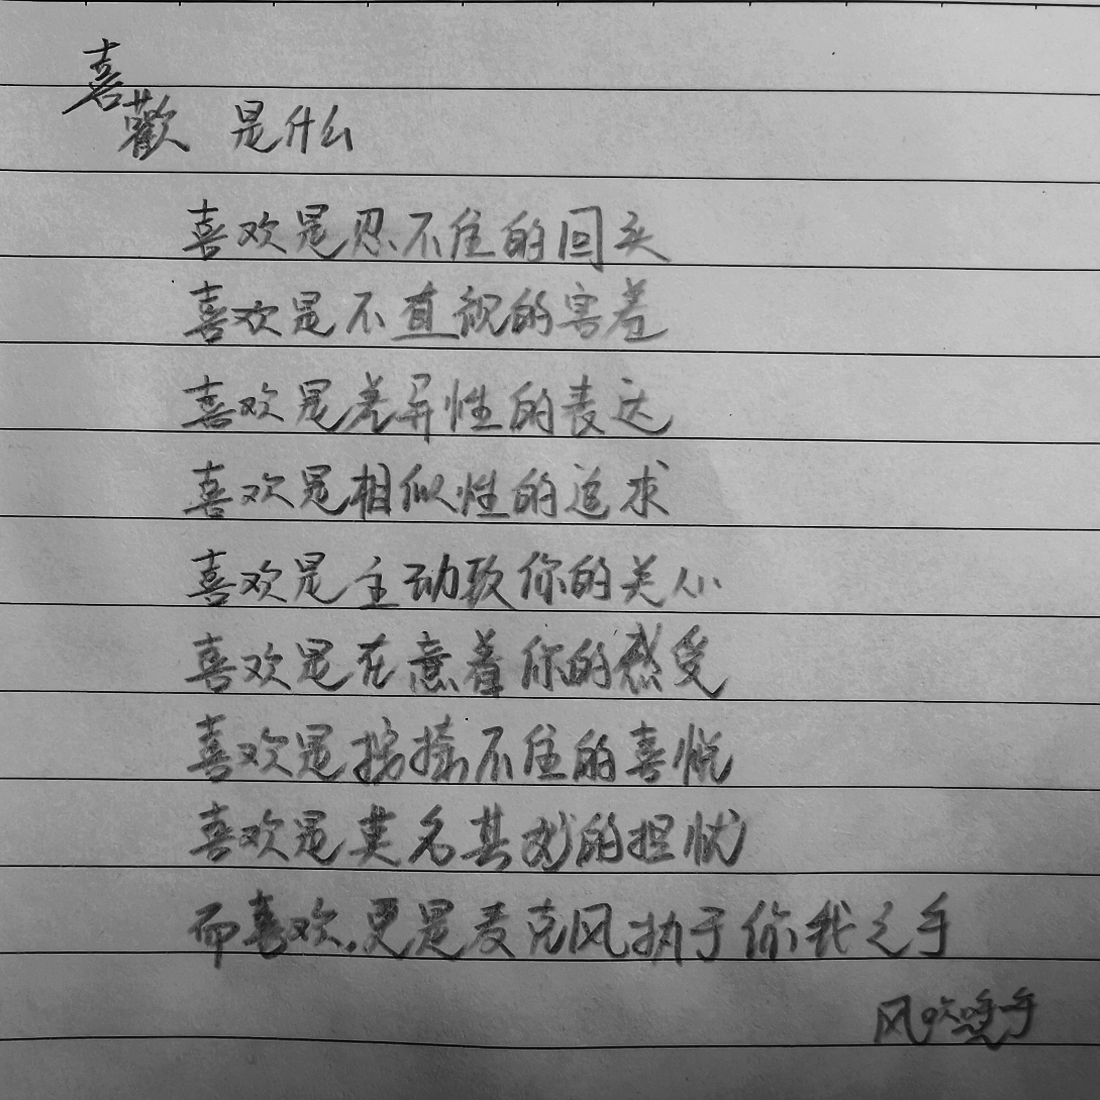 喜歡 是什么
喜欢是忍不住的回头
喜欢是不直视的害羞
喜欢是差异性的表达
喜欢是相似性的追求
喜欢是主动致你的关心
喜欢是在意着你的感受
喜欢是按捺不住的喜悦
喜欢是莫名其妙的担忧
而喜欢,更是麦克风执于你我之手
风吹